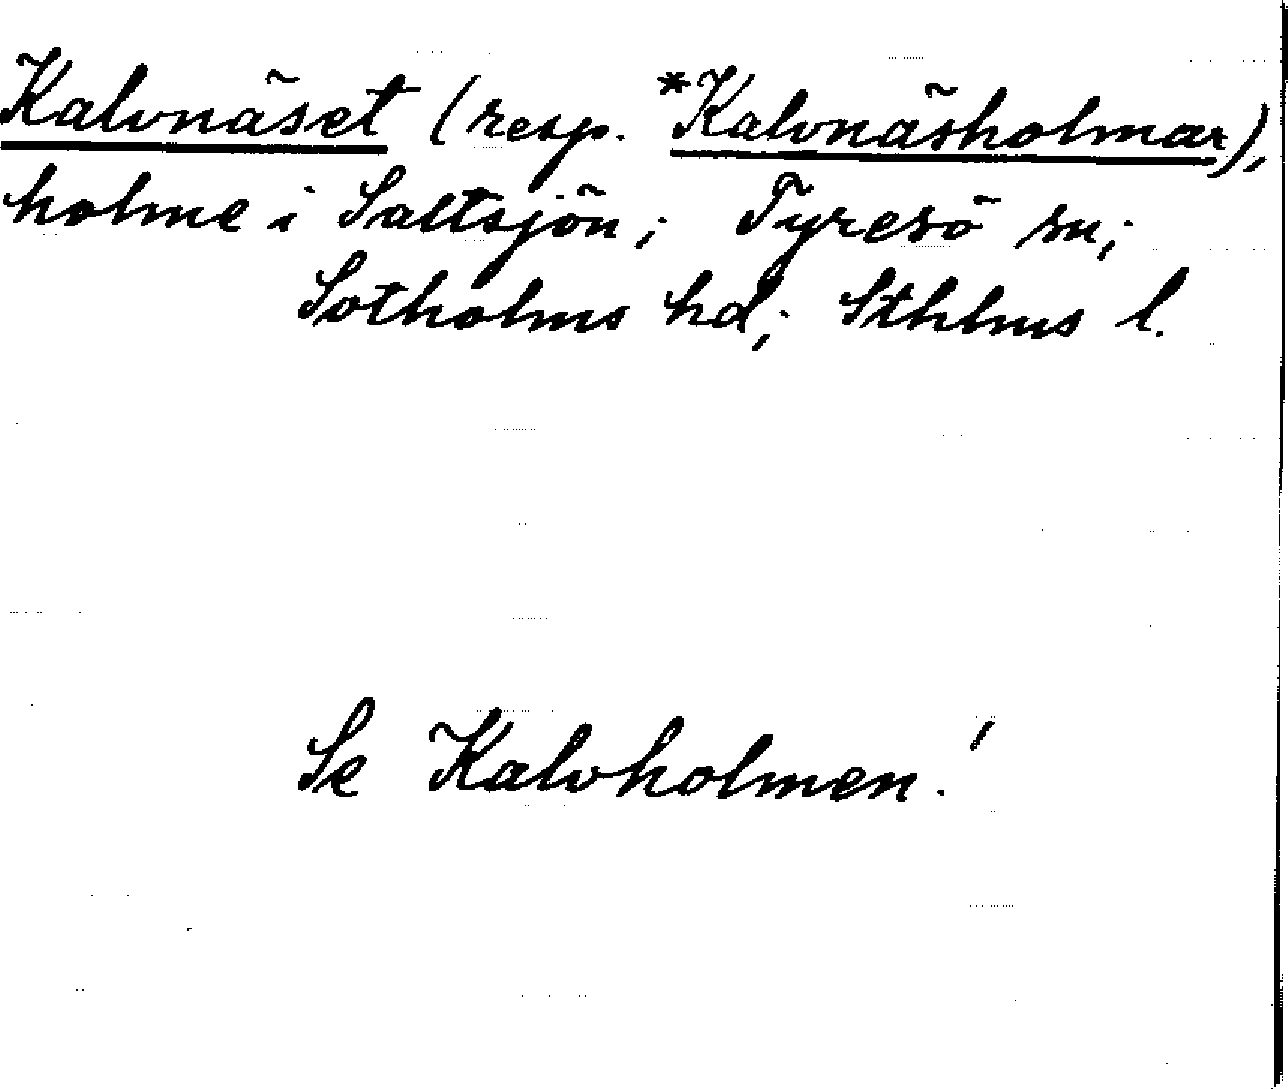 Kalvnäset (resp. *Kalvnäsholmar),
holme i Saltsjön; Tyresö sn;
Sotholms hd; Sthlms l.
Se Kalvholmen!